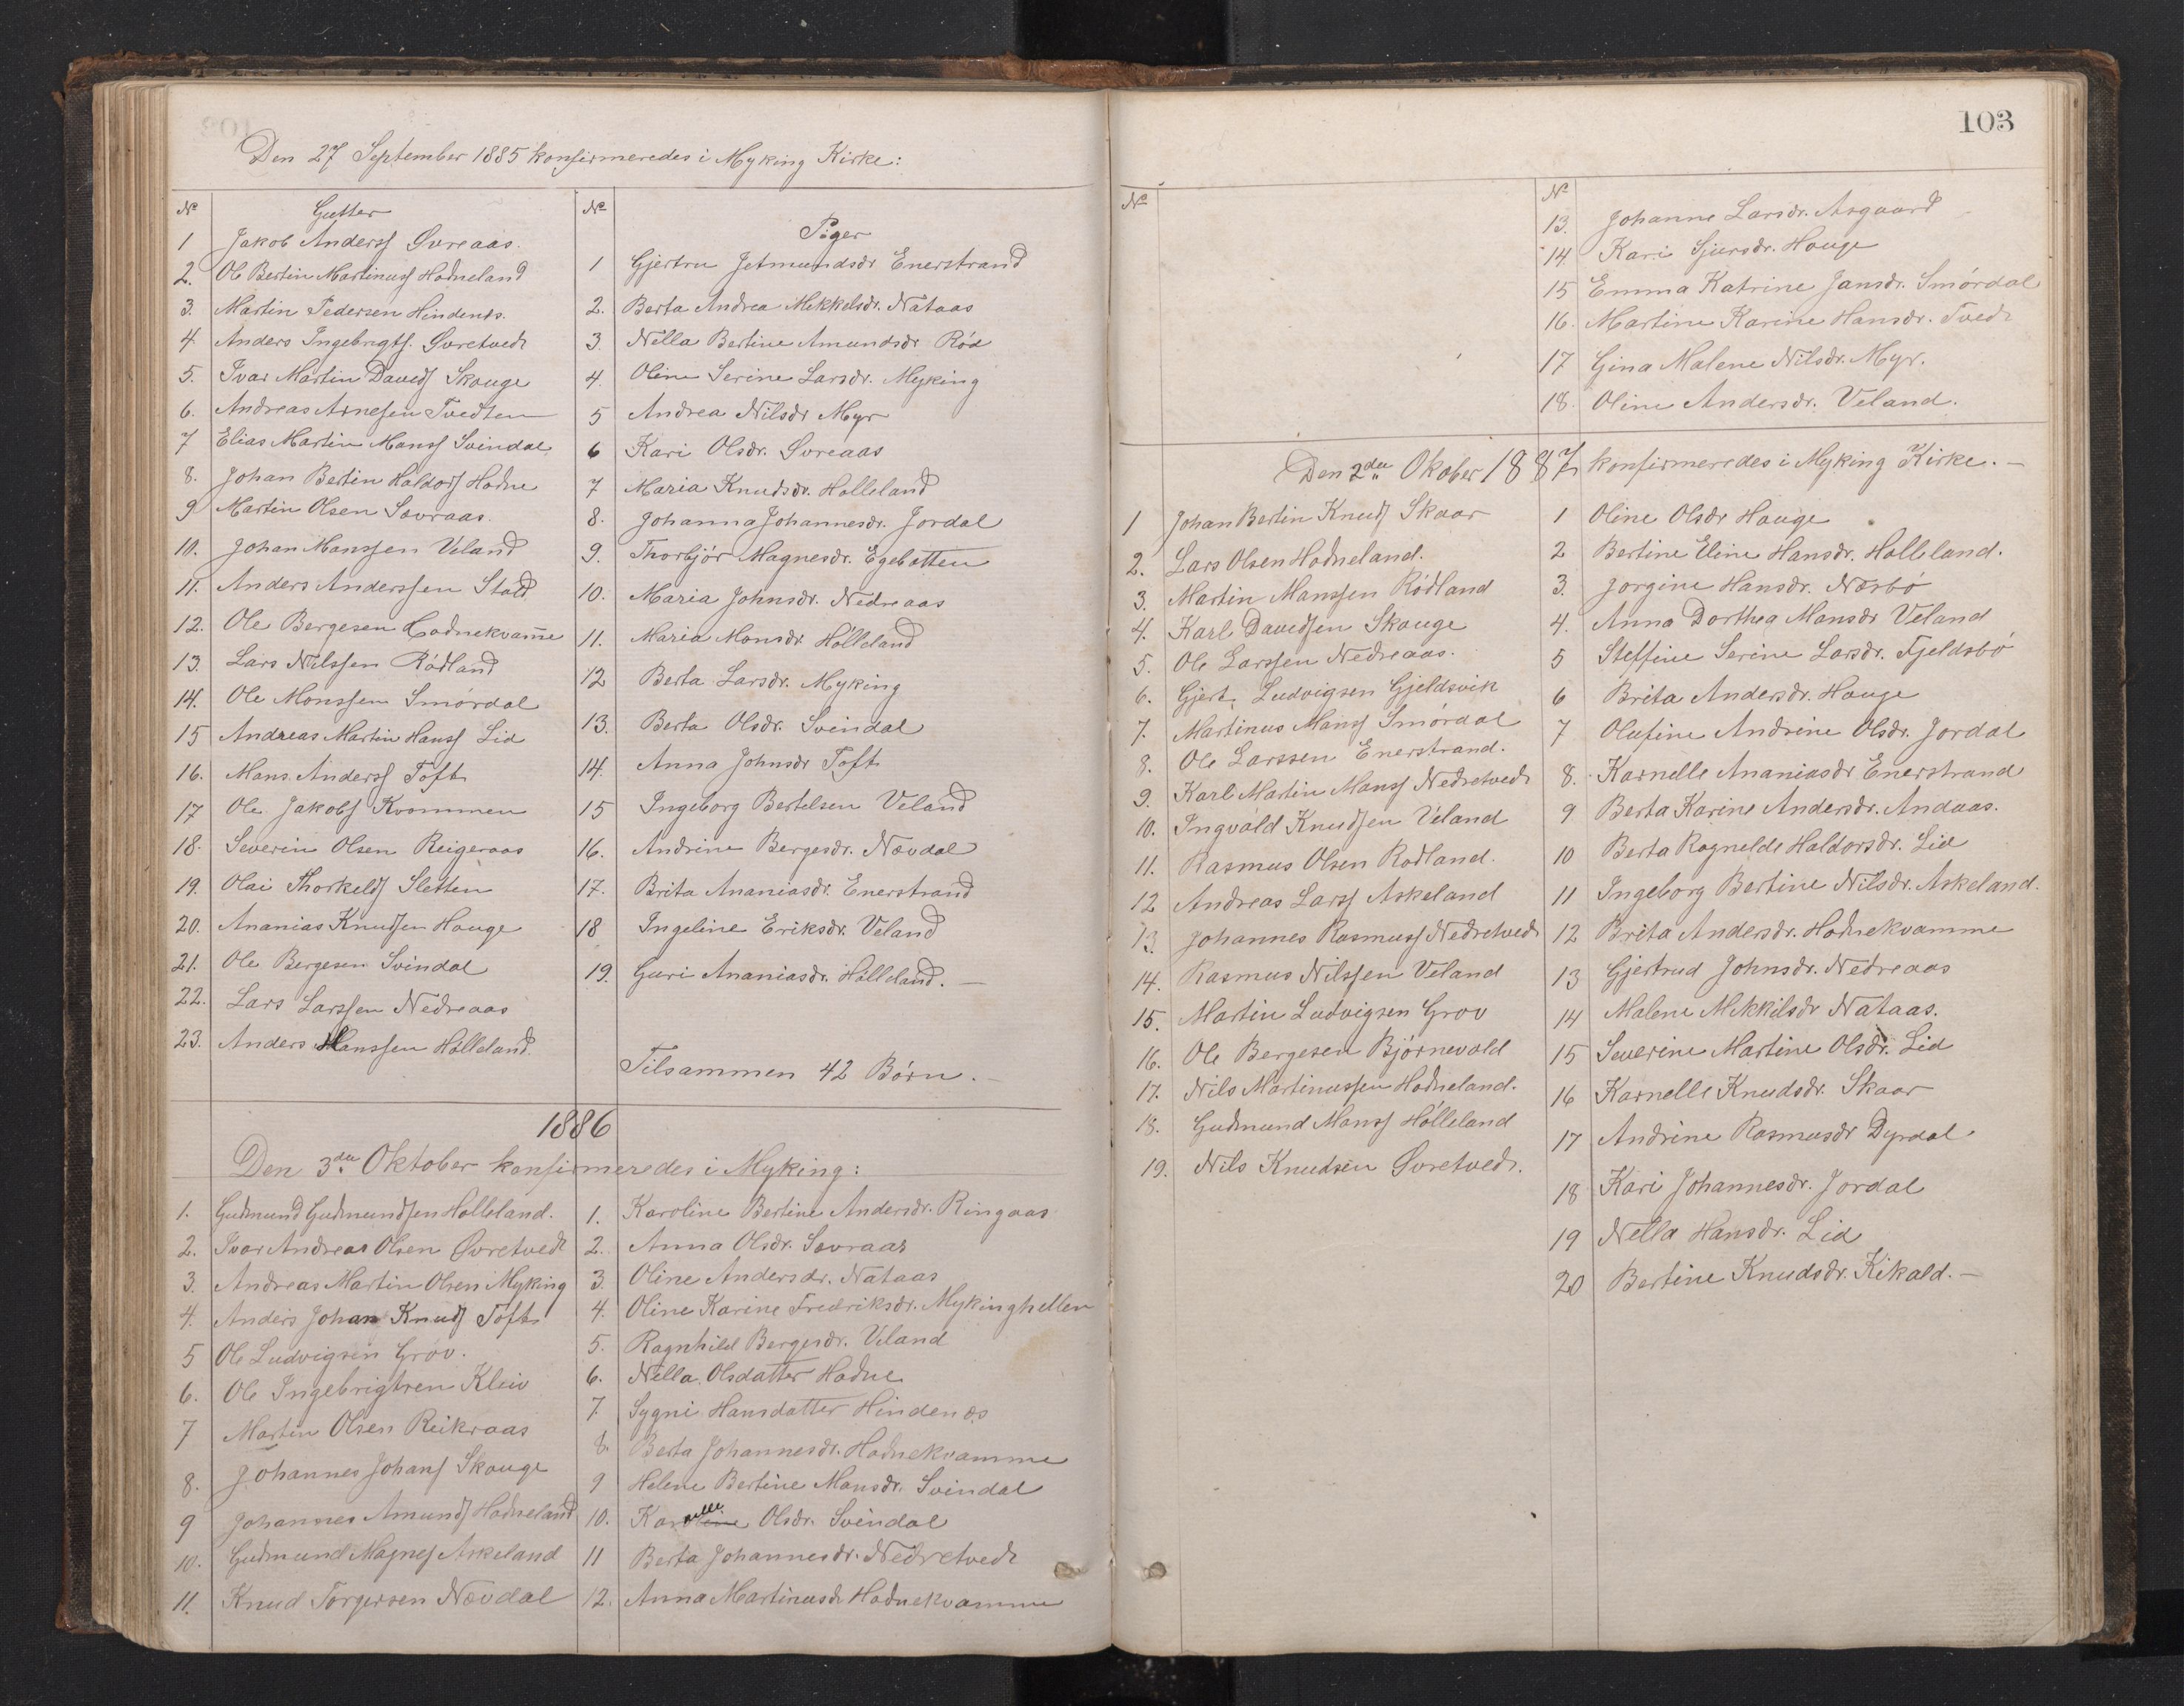 Den 27 September 1885 konfirmeredes i Myking Kirke:
No Gutter
1 Jakob Anderss Øvreaas.
2. Ole Bertin Martinuss Hodneland
3. Martin Pedersen Hindenes.
4. Anders Ingebrigts. Øvretvedt
5. Ivar Martin Davids Skouge
6. Andreas Arnesen Tvedten
7 Elias Martin Manss Svindal
8. Johan Bertin Haldors Hodne
9 Martin Olsen Sovraas.
10. Johan Manssen Veland
11. Anders Anderssen Stold
12. Ole Bergesen Hodnekvam̅e
13. Lars Nilssen Rödland
14. Ole Monssen Smördal
15 Andreas Martin Hanss Lid
16. Mans. Anderss Toft
17 Ole Jakobs Kvommen
18. Severin Olsen Reigeraas
19. Olai Thorkelds Sletten
20. Ananias Knudsen Houge
21. Ole Bergesen Svindal
22. Lars Larssen Nedreaas
23. Anders Hanssen Hölleland.
No Piger
1 Gjertru Jetmundsdr Enerstrand
2. Berta Andrea Mikkelsdr. Nataas
3. Nella Bertine Amundsdr Röd
4. Oline Serine Larsdr. Myking
5 Andrea Nilsdr Myr
6 Kari Olsdr. Øvreaas
7 Maria Knudsdr. Holleland
8. Johanna Johannesdr. Jordal
9. Thorbjör Magnesdr. Egebotten
10. Maria Johnsdr. Nedreaas
11. Maria Monsdr Hölleland
12 Berta Larsdr. Myking
13. Berta Olsdr. Svindal
14. Anna Johnsdr Toft
15 Ingeborg Bertelsen Veland
16. Andrine Bergesdr. Nævdal
17. Brita Ananiasdr. Enerstrand
18 Ingeline Eriksdr. Veland
19. Guri Ananiasdr. Hölleland. —
Tilsammen 42 Börn. —
1886
Den 3die Oktober konfirmeredes i Myking:
1. Gudmund Gudmundsen Holleland.
2. Ivar Andreas Olsen Øvretvedt
3. Andreas Martin Olsen Myking
4. Anders Johan Knuds Toft
5 Ole Ludvigsen Gröv.
6. Ole Ingebrigtsen Kleiv
7 Martin Olsen Reikraas
8. Johannes Johans Skouge
9 Johannes Amunds Hodneland
10. Gudmund Magnes Askeland
11. Knud Torgersen Nævdal
1. Karoline Bertine Andersdr. Ringaas
2. Anna Olsdr. Sovraas
3 Oline Andersdr. Nataas
4. Oline Karine Fredriksdr. Mykinghellen
5. Ragnhild Bergesdr. Veland
6. Nella Olsdatter Hodne
7. Sygni Hansdatter Hindenæs
8. Berta Johannesdr. Hodnekvamme
9 Helene Bertine Monsdr. Svindal
10. Karnelle Olsdr. Svindal
11 Berta Johannesdr. Nedretvedt
12. Anna Martinusdr Hodnekvamme
103
No
No
13. Johanne Larsdr. Asgaard
14. Kari Sjursdr. Houge
15 Emma Katrine Jansdr. Smördal
16. Martine Karine Hansdr. Tvedt
17 Gina Malene Nilsdr. Myr.
18. Oline Andersdr. Veland.
Den 2den Okober 1887 konfirmeredes i Myking Kirke. —
1 Johan Bertin Knuds Skaar
2. Lars Olsen Hodneland.
3. Martin Manssen Rödland
4. Karl Davidsen Skouge
5. Ole Larssen Nedreaas.
6. Gjert. Ludvigsen Gjeldsvik
7. Martinus Manss Smördal
8. Ole Larssen Enerstrand.
9. Karl Martin Manss Nedretvedt
10. Ingvald Knudsen Veland
11. Rasmus Olsen Rodland.
12 Andreas Larss Askeland
13. Johannes Rasmuss Nedretvedt
14. Rasmus Nilssen Veland
15. Martin Ludvigsen Grov
16. Ole Bergesen Björnevold
17. Nils Martinussen Hodneland.
18. Gudmund Manss Hölleland
19. Nils Knudsen Øvretvedt.
1 Oline Olsdr Houge
2 Bertine Eline Hansdr. Holleland.
3. Jorgine Hansdr. Næsbö
4. Anna Dorthea Mansdr Veland
5 Steffine Serine Larsdr. Fjeldsbö
6 Brita Andersdr. Houge
7 Olufine Andrine Olsdr. Jordal
8. Karnelle Ananiasdr Enerstrand
9 Berta Karine Andersdr. Andaas.
10 Berta Ragnelde Haldorsdr. Lid
11 Ingeborg Bertine Nilsdr. Askeland.
12 Brita Andersdr. Hodnekvamme
13 Gjertrud Johnsdr. Nedreaas
14 Malene Mikkelsdr Nataas.
15 Severine Martine Olsdr. Lid
16 Karnelle Knudsdr. Skaar
17 Andrine Rasmusdr Dyrdal
18 Kari Johannesdr. Jordal
19 Nella Hansdr. Lid
20 Bertine Knudsdr. Kikald. —